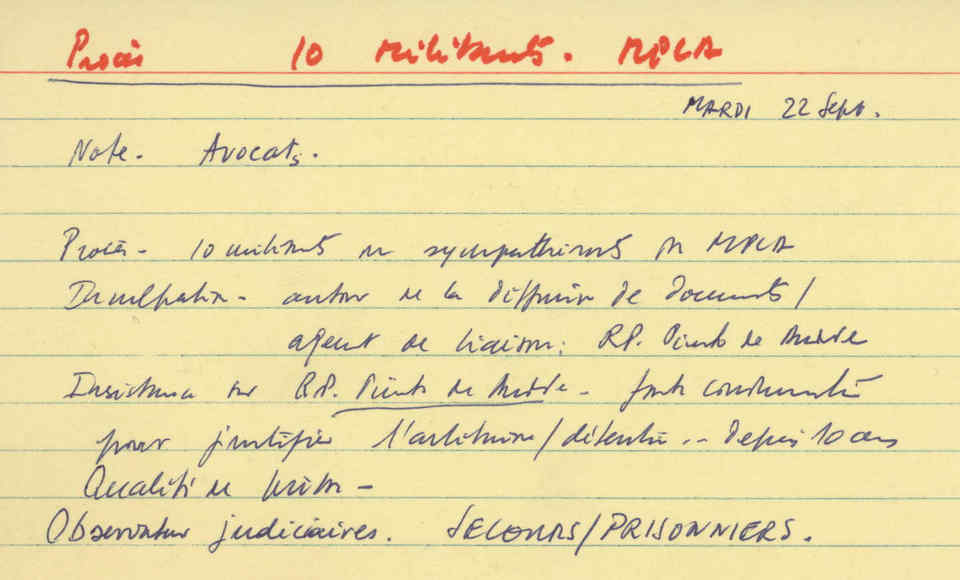 Procès 10 Militants. MPLA
MARDI 22 Sept.
Note. Avocats.
Procès - 10 militants ou sympathisants du MPLA
Inculpation - autour de la diffusion de documents /
agent de liaison: RP. Pinto de
Insistance sur R.P. Pinto de - forte
pour justifier l'arbitraire / détention .. depuis 10 ans
Qualité de
Observateur judiciaires. SECOURS/PRISONNIERS.